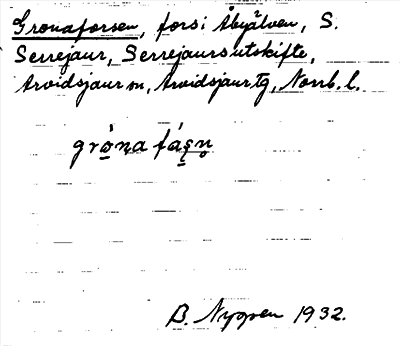 Gronaforsen, fors i Åbyälven, S.
Serrejaur, Serrejaurs utskifte,
Arvidsjaur sn, Arvidsjaur tg, Norrb. l.
grò̠n̥a fás̨n̥
B. Nygren 1932.